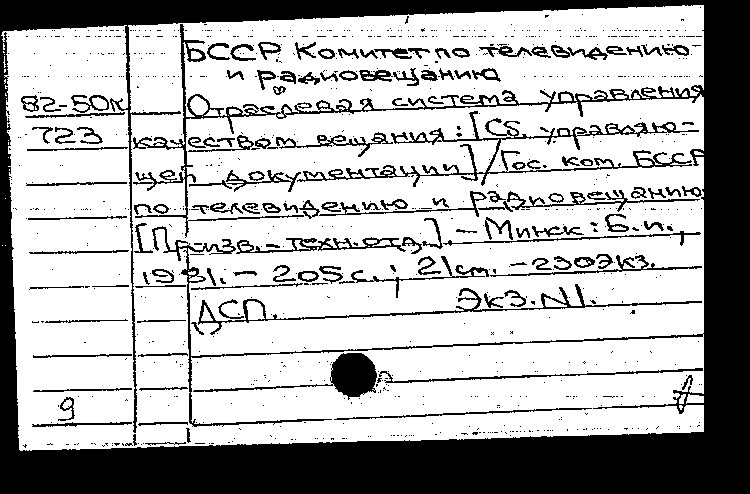 БССР. Комитет по телевидению
и радиовещанию
82-50к Отраслевая система управления
723 качеством вещания: [Сб. управляю-
щей документации] / Гос. ком. БССР
по телевидению и радиовещанию.
[Произв.-техн. отд.]. - Минск: Б.и.,
1981. - 205 с.; 21 см. - 230 экз.
ДСП. Экз. N1.
9